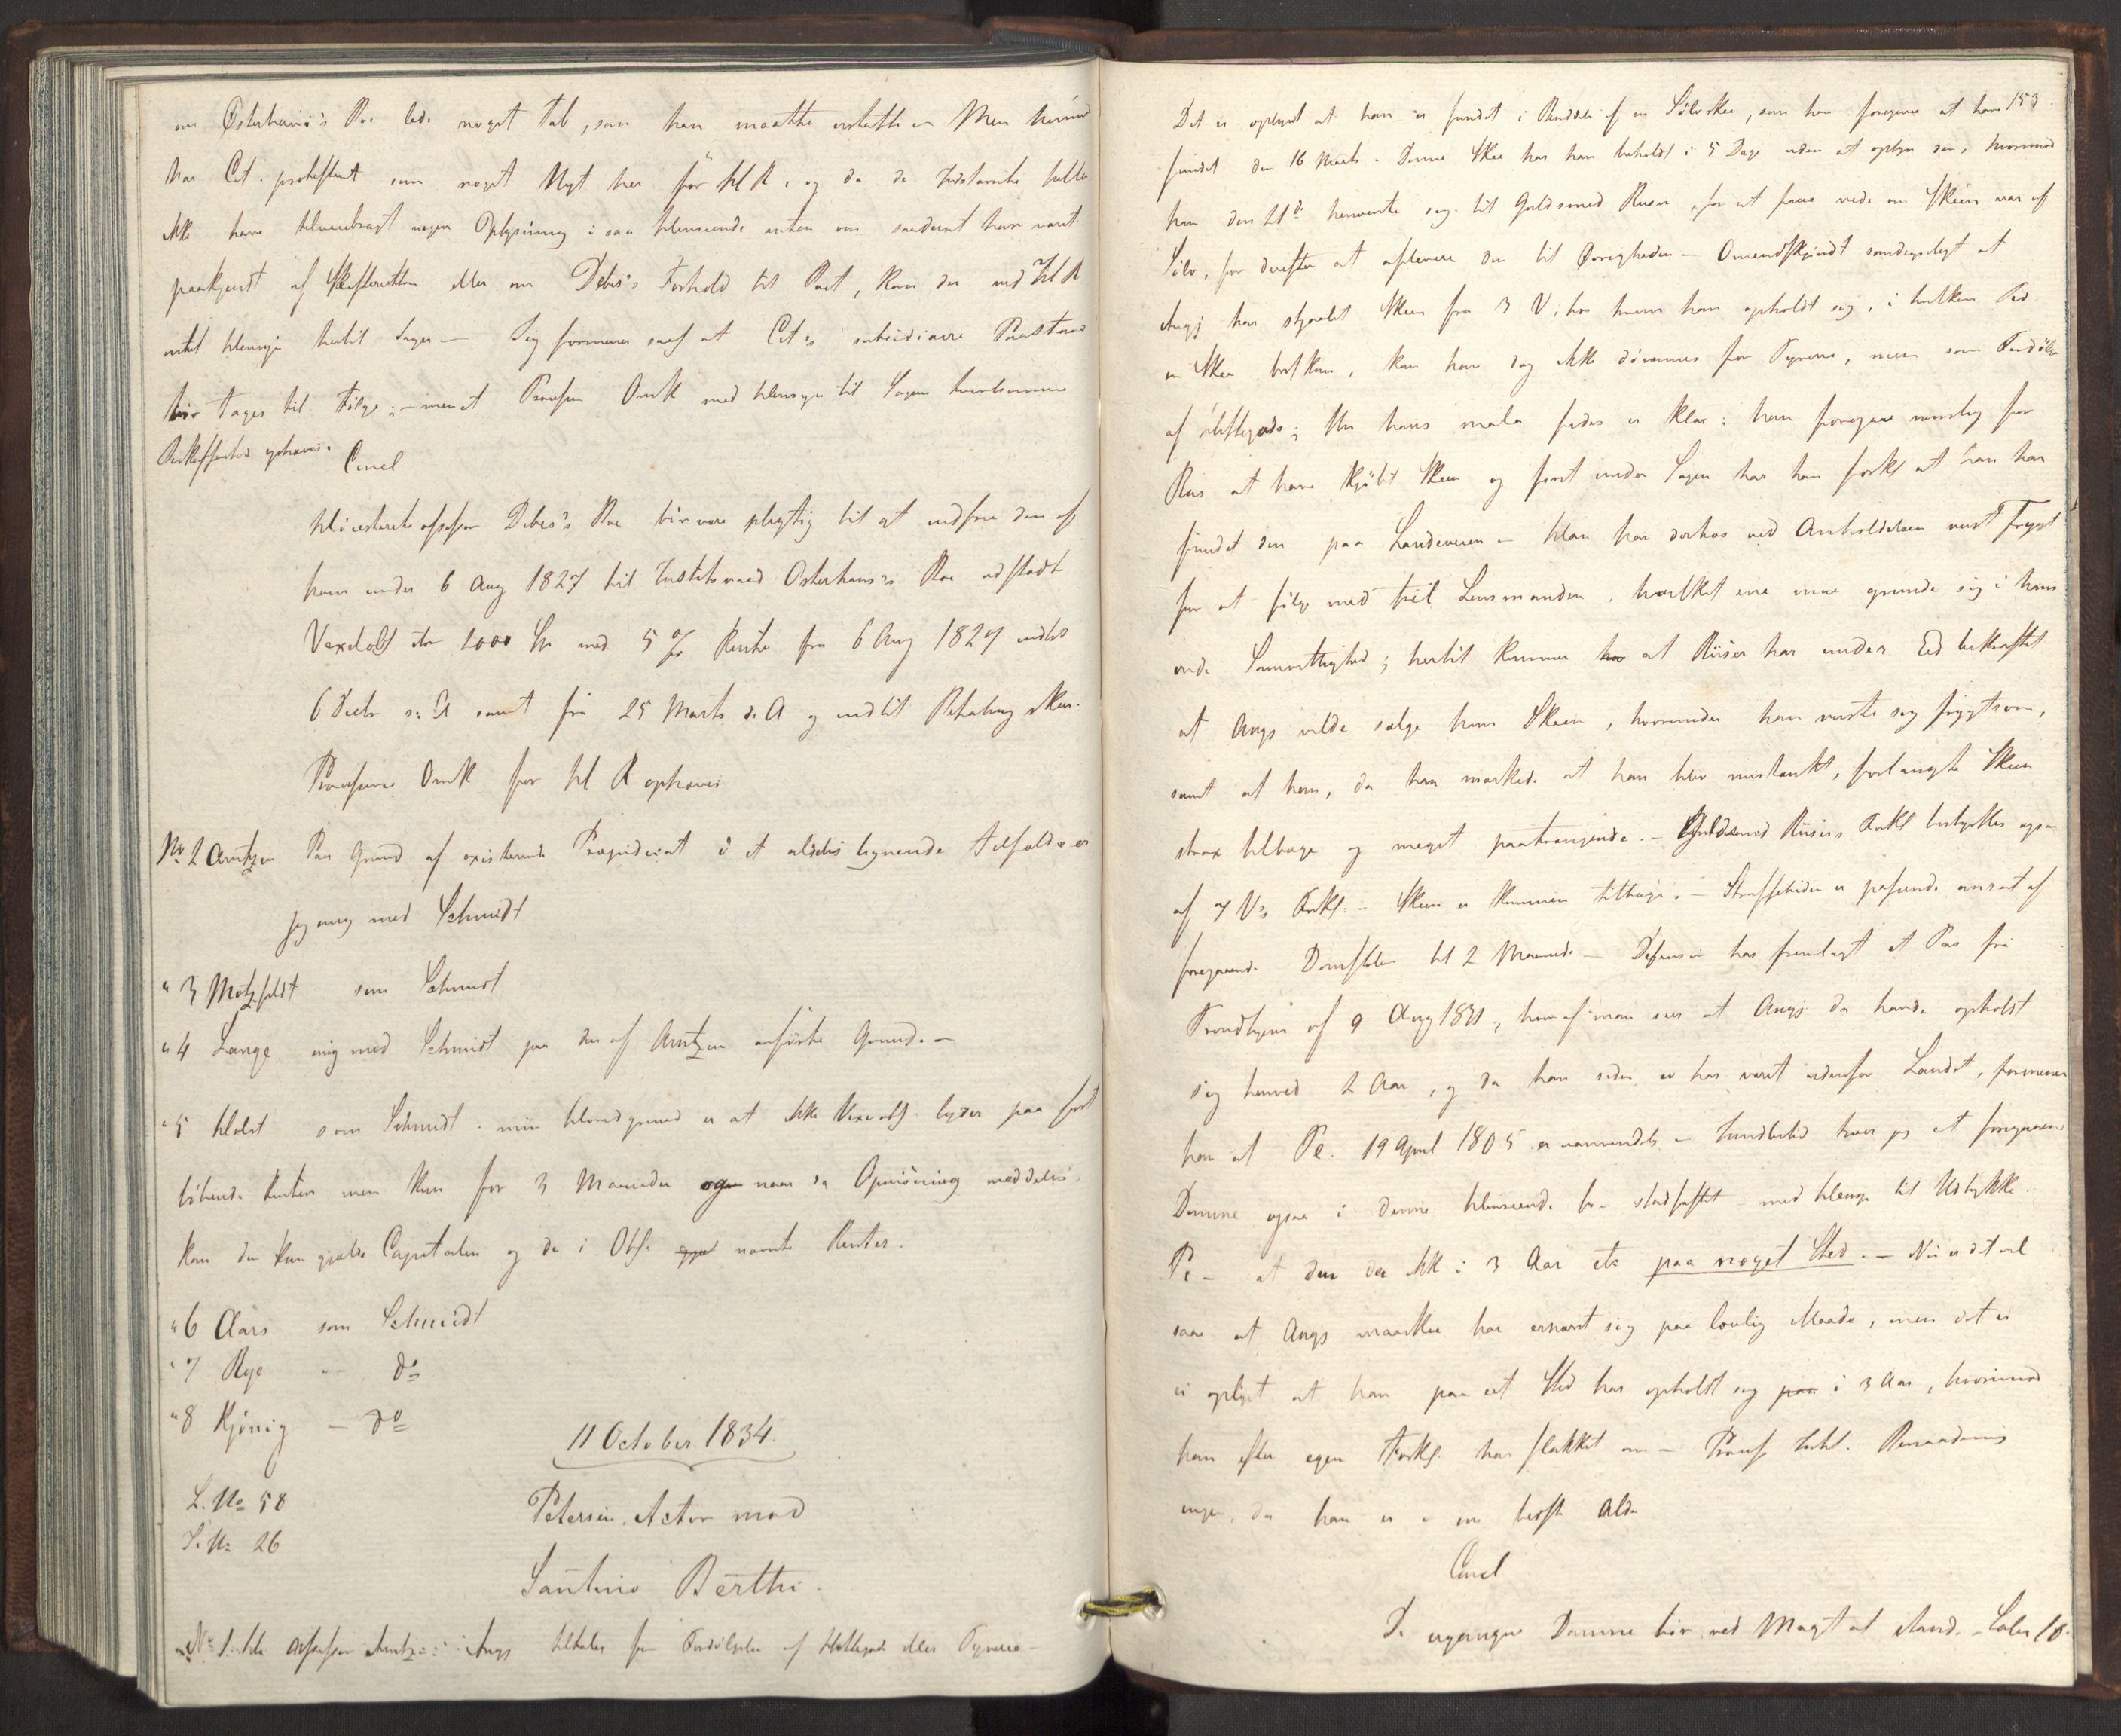 om Osterhaus's Boe lide noget Tab, som han maatte erstatte. Men herved
har Cit. protesteret som noget Nyt her før H R, og da de Indstævnte heller
ikke have tilveiebragt nogen Oplysning i saa Henseende enten om saadant har været
paakjendt af Skifteretten eller om Debes's Forhold til Boet, kan der ved H R
intet Hensyn hertil tages — Jeg formener saal. at Cit:s subsidiaire Paastand
bør tages til Følge; — men at Processens Omk med Hensyn til Sagens tvivlsomme
Beskaffenhed ophæves.
Concl
Høiesteretsassessor Debes's Boe bør være pligtig til at indfrie den af
ham under 6 Aug 1827 til Justitsraad Osterhaus's Boe udstedte
Vexelobl. stor 1000 Sp med 5 % Rente fra 6 Aug 1827 indtil
6 Decbr s: A samt fra 25 Marts d. A og indtil Betaling skeer.
Processens Omk for H R ophæves
No 2 Arntzen Paa Grund af existerende Præjudicat i et aldeles lignende Tilfælde er
jeg enig med Schmidt
" 3 Motzfeldt som Schmidt
" 4 Lange enig med Schmidt paa den af Arntzen anførte Grund. —
" 5 Holst som Schmidt. min Hovedgrund er at ikke Vexelobl. lyder paa fort
løbende Renter men kun for 3 Maaneder og naar da Opsigning meddeles,
kan den kun gjælde Capitalen og de i Obl. nævnte Renter.
" 6 Aars som Schmidt
" 7 Rye — do
" 8 Kjønig — do
11 October 1834.
L. No 58
Petersen Actor mod
S. No 26
Santino Berthi.
No 1. Assessor Arntzen: Angj tiltales for Fordølgelse af Hittegods eller Tyverie —
153
Det er oplyst at han er fundet i Besiddelse af en Sølvskee, som han foregiver at have
fundet den 16 Marts. Denne Skee har han beholdt i 5 Dage uden at oplyse den, hvorimod
han den 21de henvendte sig til Guldsmed Riiser, for at faae vide om Skeen var af
Sølv, for derefter at aflevere den til Øvrigheden — Omendskjøndt sandsynligt at
Angj har stjaalet Skeen fra 3 V, hos hvem han opholdt sig, i hvilken Tid
en Skee bortkom, kan han dog ikke dømmes for Tyverie, men som Fordølger
af Hittegods; thi hans mala fides er klar: han foregav nemlig for
Riis at have kjøbt Skeen og først under Sagen har han forkl at han har
fundet den paa Landeveien — Han har derhos ved Anholdelsen viist Frygt
for at følge med til Lensmanden, hvilket ene maa grunde sig i hans
onde Samvittighed; hertil kommer at Riiser har under Ed bekræftet
at Angj vilde sælge ham Skeen, hvorunder han viste sig frygtsom,
samt at han, da han mærkede at han blev mistænkt, forlangte Skeen
strax tilbage og meget paatrængende. — Guldsmed Riisers Forkl bestyrkes ogsaa
af 7 V's Forkl. — Skeen er kommen tilbage. — Straffetiden er passende ansat af
foregaaende Domstole til 2 Maaneder — Defensor har fremlagt et Pas fra
Trondhjem af 9 Aug 1831, hvoraf man seer at Angj da havde opholdt
sig henved 2 Aar, og da han siden ei har været udenfor Landet, formener
han at Pl. 19 April 1805 er uanvendelig — Imidlertid troer jeg at foregaaende
Domme ogsaa i denne Henseende bør stadfæstes med Hensyn til Udtrykket i
Pl — at den der ikke i 3 Aar etc paa noget Sted. — Nu er det vel
saa at Angj maaskee har ernæret sig paa lovlig Maade, men det er
ei oplyst at han paa eet Sted har opholdt sig paa i 3 Aar, hvorimod
han efter egen Forkl. har flakket om —
ingen, da han er i sin bedste Alder
Concl
De ergangne Domme bør ved Magt at stande.